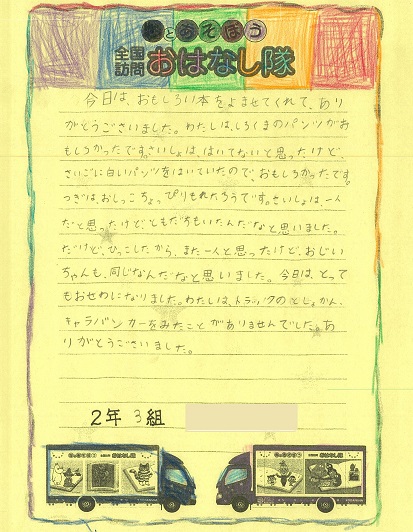 本とあそぼう
全国訪問おはなし隊
今日は、おもしろい本をよませてくれて、あり
がとうございました。わたしは、しろくまのパンツがお
もしろかったです。さいしょは、はいてないと思ったけど、
さいごに白いパンツをはいていたので、おもしろかったです。
つぎは、おしっこちょっぴりもれたろうです。さいしょは、一人
だと思ったけどともだちもいたんだなと思いました。
だけど、ひっこしたから、また一人と思ったけど、おじい
ちゃんも、同じなんだなと思いました。今日は、とって
もおせわになりました。わたしは、トラックのとしょかん、
キャラバンカーをみたことがありませんでした。あ
りがとうございました。
2年 3組
おはなし隊
おはなし隊